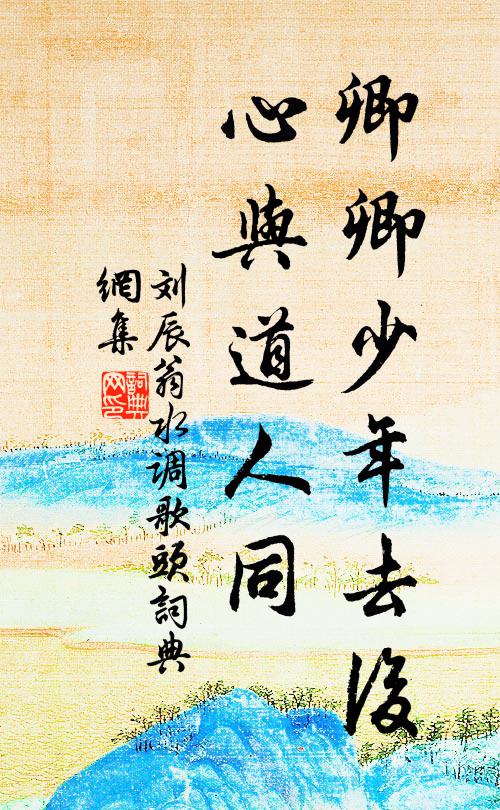 卿卿少年去後
心與道人同
刘辰翁水调歌頭詞典
網集
詞典
网印